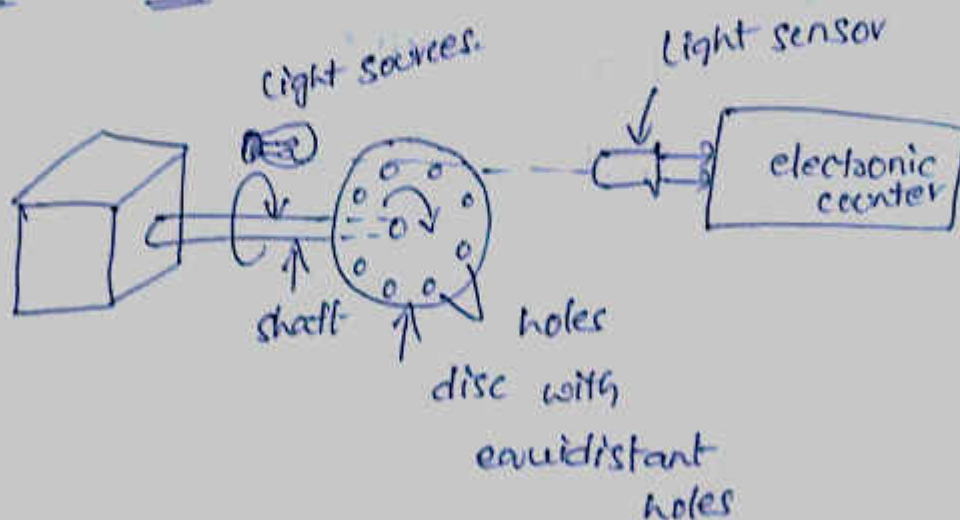 light sources.
light sensor
electronic
counter
shaft
holes
disc with
equidistant
holes